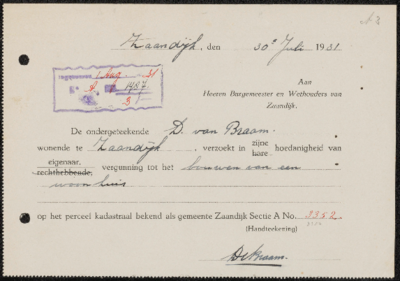 Zaandijk, den 30 Juli 1931
Aan
Heeren Burgemeester en Wethouders van
Zaandijk.
1 Aug 31
1487
De ondergeteekende D. van Braam
wonende te Zaandijk, verzoekt in zijne hare hoedanigheid van
eigenaar,
rechthebbende, vergunning tot het bouwen van een
woonhuis
op het perceel kadastraal bekend als gemeente Zaandijk Sectie A No. 3952
(Handteekening)
DvBraam.